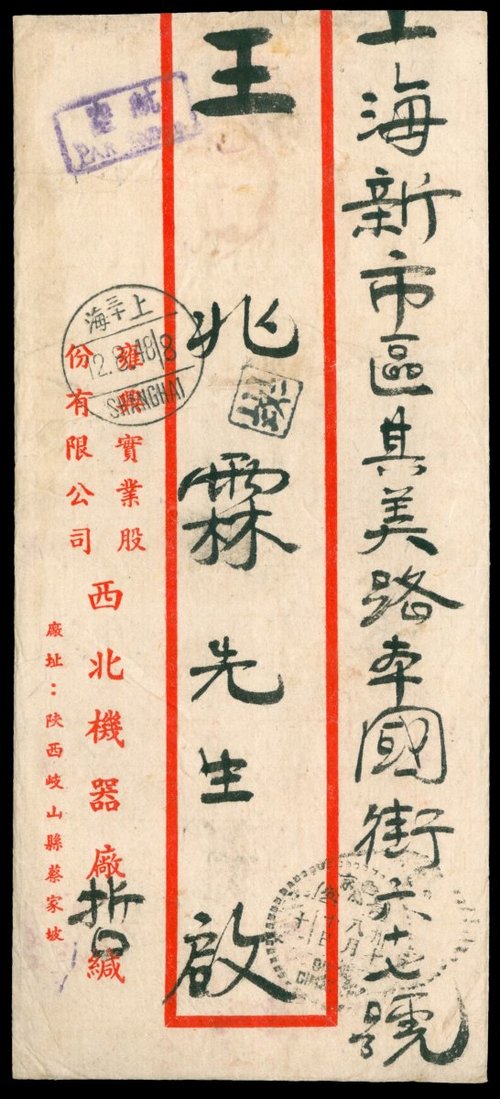 上海新市區其美路本國街六十七號
王兆霖先生啟
雍興實業股
份有限公司
西北機器廠哲緘
廠址：陝西岐山縣蔡家坡
航空
PAR AVION
上海
SHANGHAI